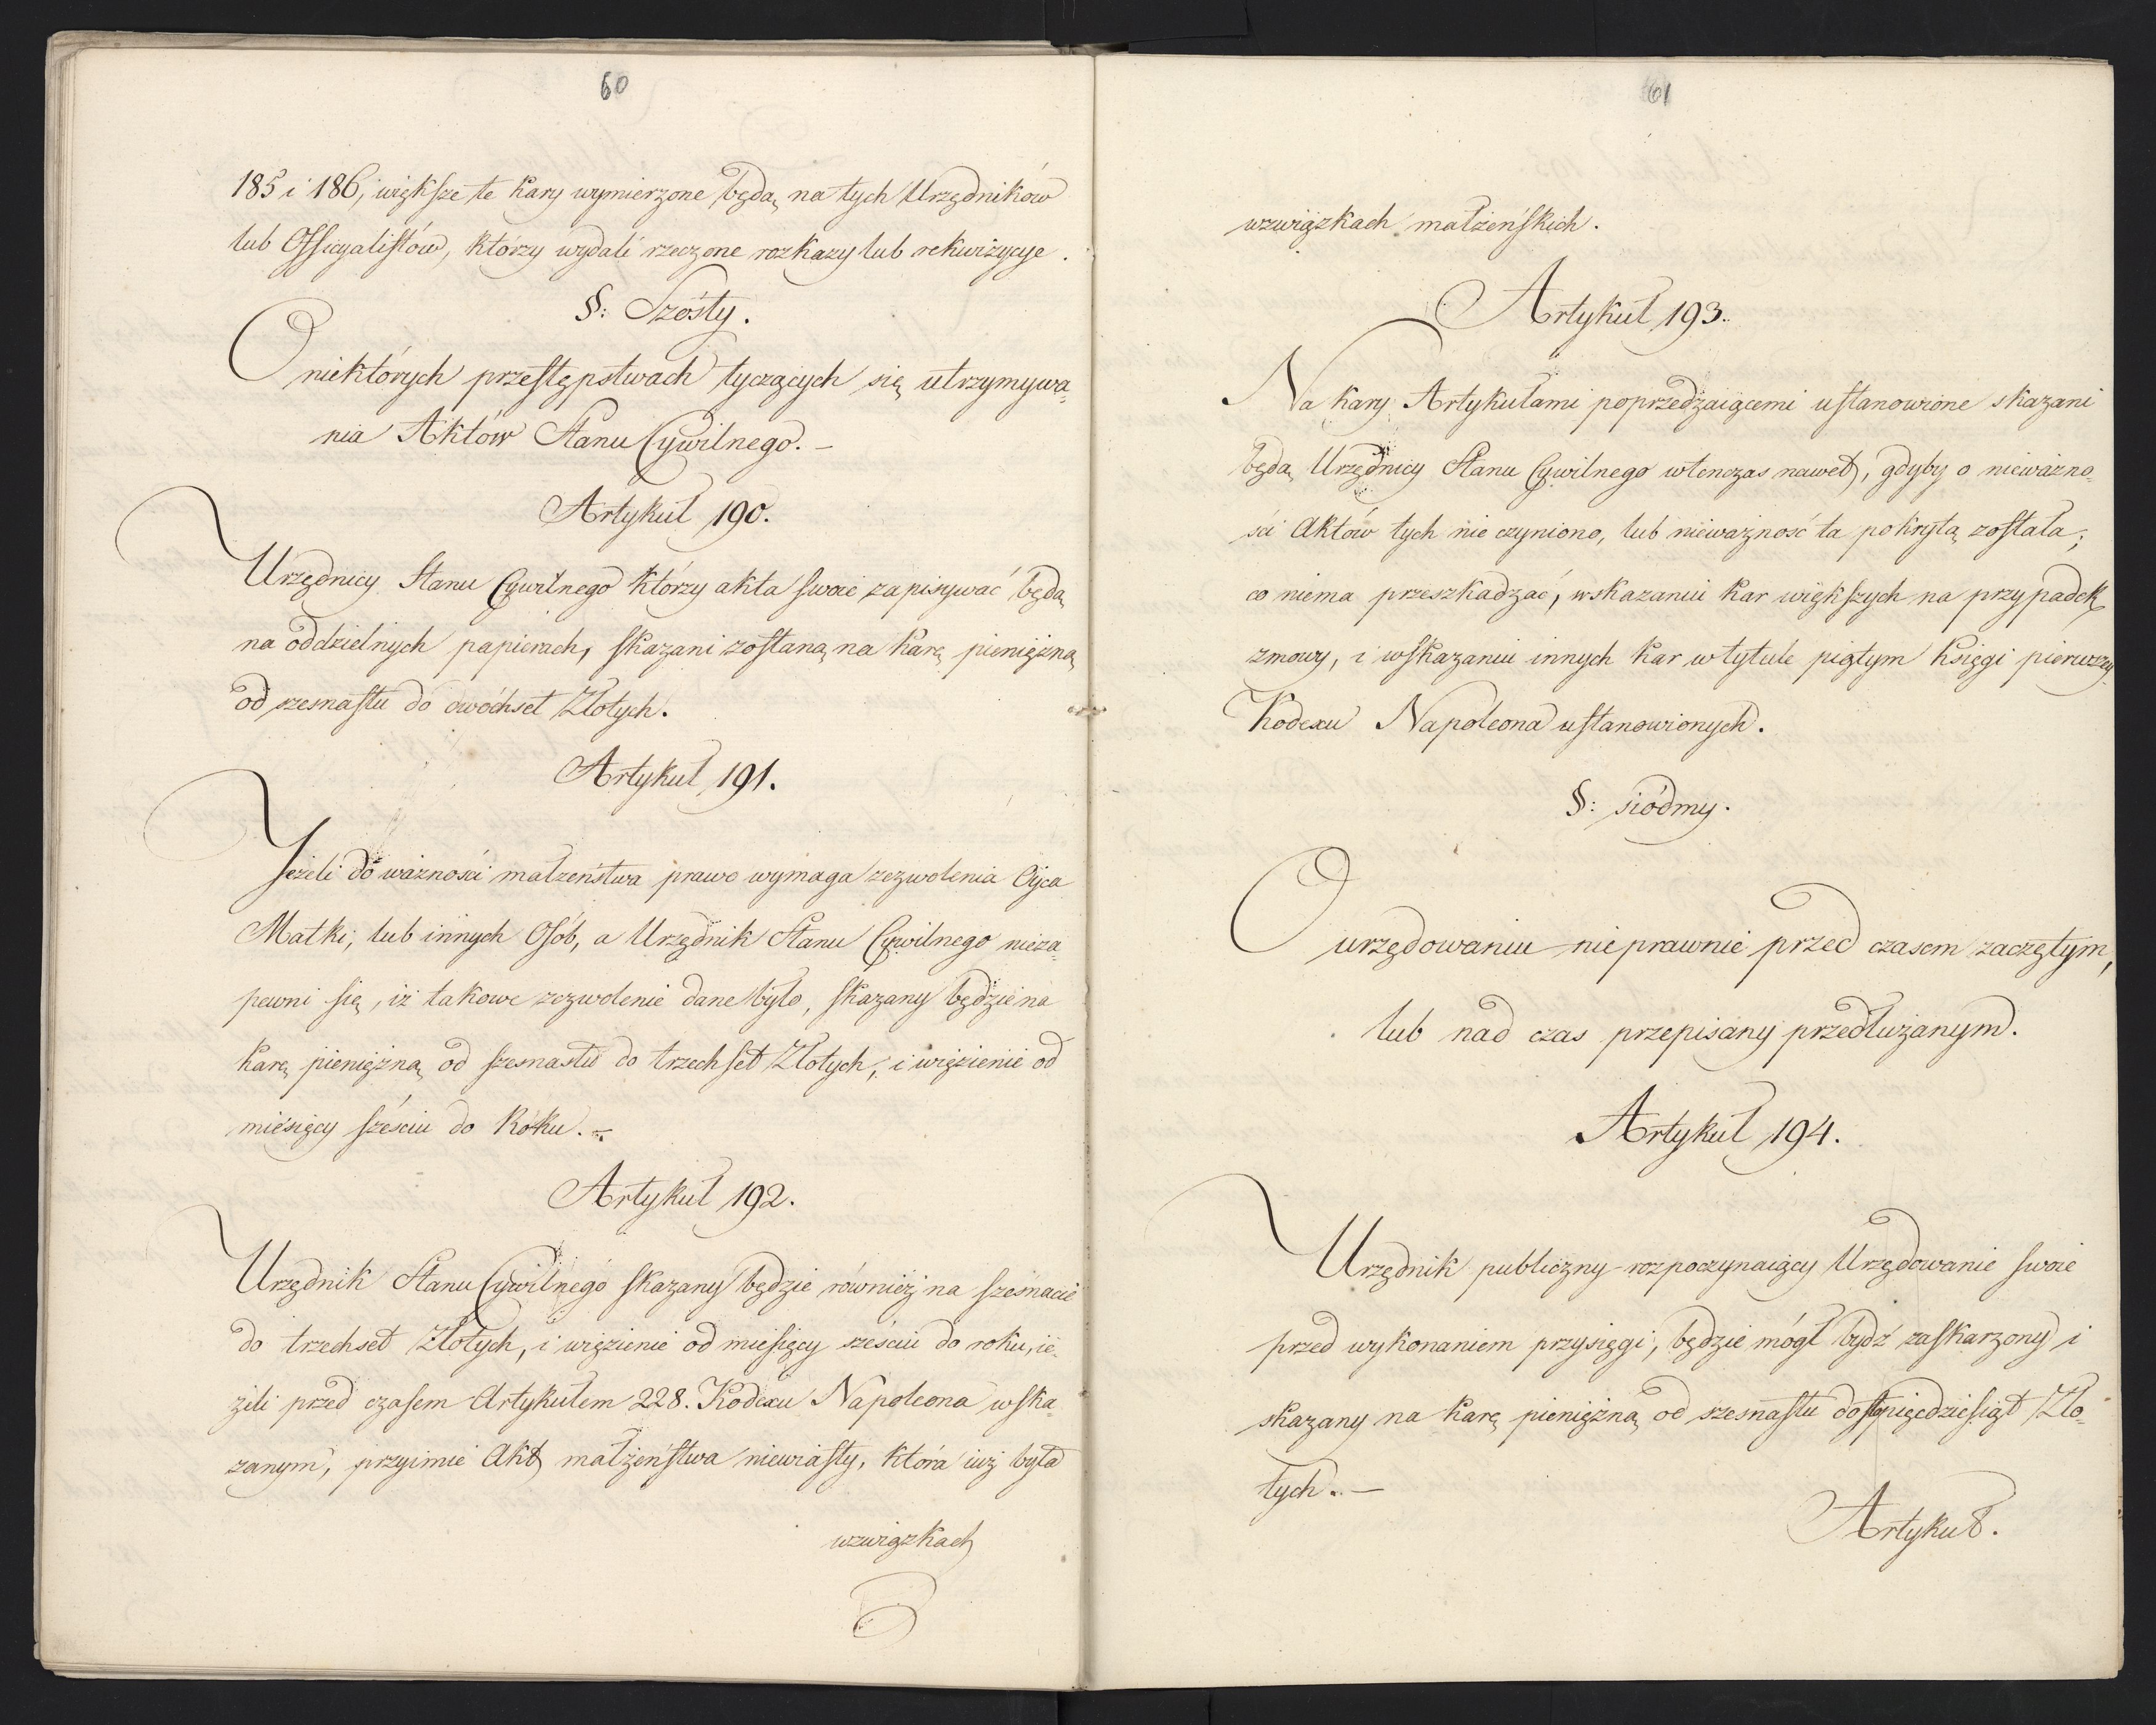 60
185 i 186, większe te kary wymierzone będą na tych Urzędników
lub Officyalistów, którzy wydali rzeczone rozkazy lub rekwizycye.
§: Szósty.
O niektórych przestępstwach tyczących się utrzymywa=
nia Aktów Stanu Cywilnego. –
Artykuł 190.
Urzędnicy Stanu Cywilnego którzy akta swoie zapisywać będą
na oddzielnych papierach, skazani zostaną na karę pieniężną
od szesnastu do dwóchset Złotych.
Artykuł 191.
Jeżeli do ważności małżeństwa prawo wymaga zezwolenia Oyca
Matki, lub innych Osób, a Urzędnik Stanu Cywilnego nieza=
pewni się, iż takowe zezwolenie dane było, skazany będzie na
karę pieniężną od szesnastu do trzechset Złotych, i więzienie od
miesięcy sześciu do Roku. –
Artykuł 192.
Urzędnik Stanu Cywilnego skazany będzie również na szesnacie
do trzechset Złotych, i więzienie od miesięcy sześciu do roku, ie=
żeli przed czasem Artykułem 228. Kodexu Napoleona wska=
zanym, przyimie Akt małżeństwa niewiasty, która iuż była
wzwiązkach
61
wzwiązkach małżeńskich.
Artykuł 193.
Na kary Artykułami poprzedzaiącemi ustanowione skazani
będą Urzędnicy Stanu Cywilnego wtenczas nawet, gdyby o nieważno=
ści Aktów tych nie czyniono, lub nieważność ta pokrytą została;
co niema przeszkadzać, wskazaniu kar większych na przypadek
zmowy, i wskazaniu innych kar w tytule piątym Księgi pierwszey
Kodexu Napoleona ustanowionych.
§: siódmy.
O urzędowaniu nieprawnie przed czasem zaczętym,
lub nad czas przepisany przedłużanym.
Artykuł 194.
Urzędnik publiczny rozpoczynaiący Urzędowanie swoie
przed wykonaniem przysięgi, będzie mógł bydź zaskarżony i
skazany na karę pieniężną od szesnastu do stupięćdziesiąt Zło=
tych. –
Artykuł.